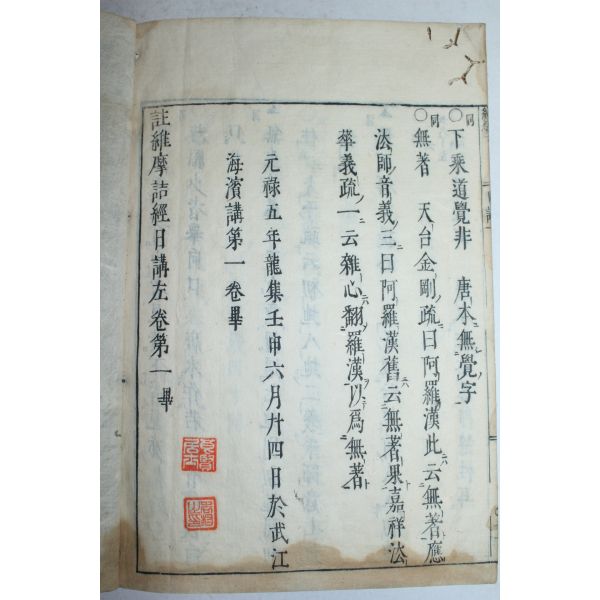 同
○下乘道覺非　唐本無覺字
同
○無著　天台金剛疏曰阿羅漢此云無著應
法師音義三曰阿羅漢舊云無著果嘉祥法
華義疏一云雜心翻羅漢以爲無著
元祿五年龍集壬申六月廿四日於武江
海濱講第一卷畢
註維摩詰經日講左卷第一畢